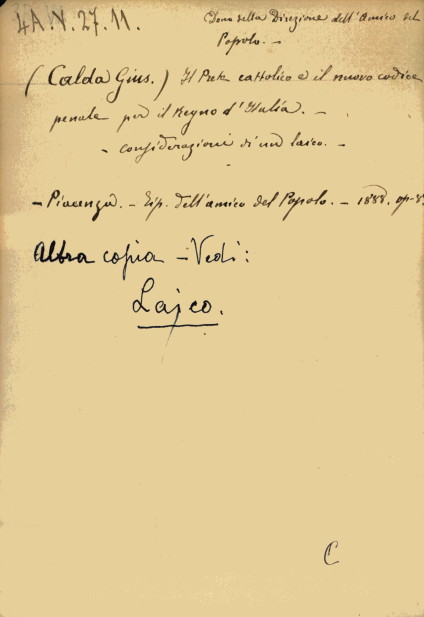 4A.N.27.11.
Dono della Direzione dell'Amico del
Popolo. -
(Calda Gius.) Il Prete cattolico e il nuovo codice
penale per il Regno d'Italia. -
- considerazioni di un laico. -
- Piacenza. - Tip. dell'amico del Popolo. - 1888. op-8.
Altra copia - Vedi:
Laico.
C